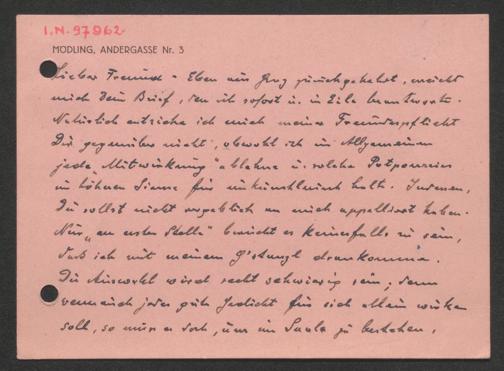 I.N. 97862
MÖDLING, ANDERGASSE Nr. 3
Lieber Freund - Eben aus Graz zurückgekehrt, erreicht
mich Dein Brief, den ich sofort u. in Eile beantworte.
Natürlich entziehe ich mich meiner Freundespflicht
Dir gegenüber nicht, obwohl ich im Allgemeinen
jede „Mitwirkung" ablehne u. solche Potpourries
im höheren Sinne für unkünstlerisch halte. Indessen,
Du sollst nicht vergeblich an mich appelliert haben.
Nur „an erster Stelle" braucht es keinesfalls zu sein,
daß ich mit meinem G'stanzl drankomme.
Die Auswahl wird recht schwierig sein; denn
wenn auch jedes gute Gedicht für sich allein wirken
soll, so muss es doch, um im Saale zu bestehen,